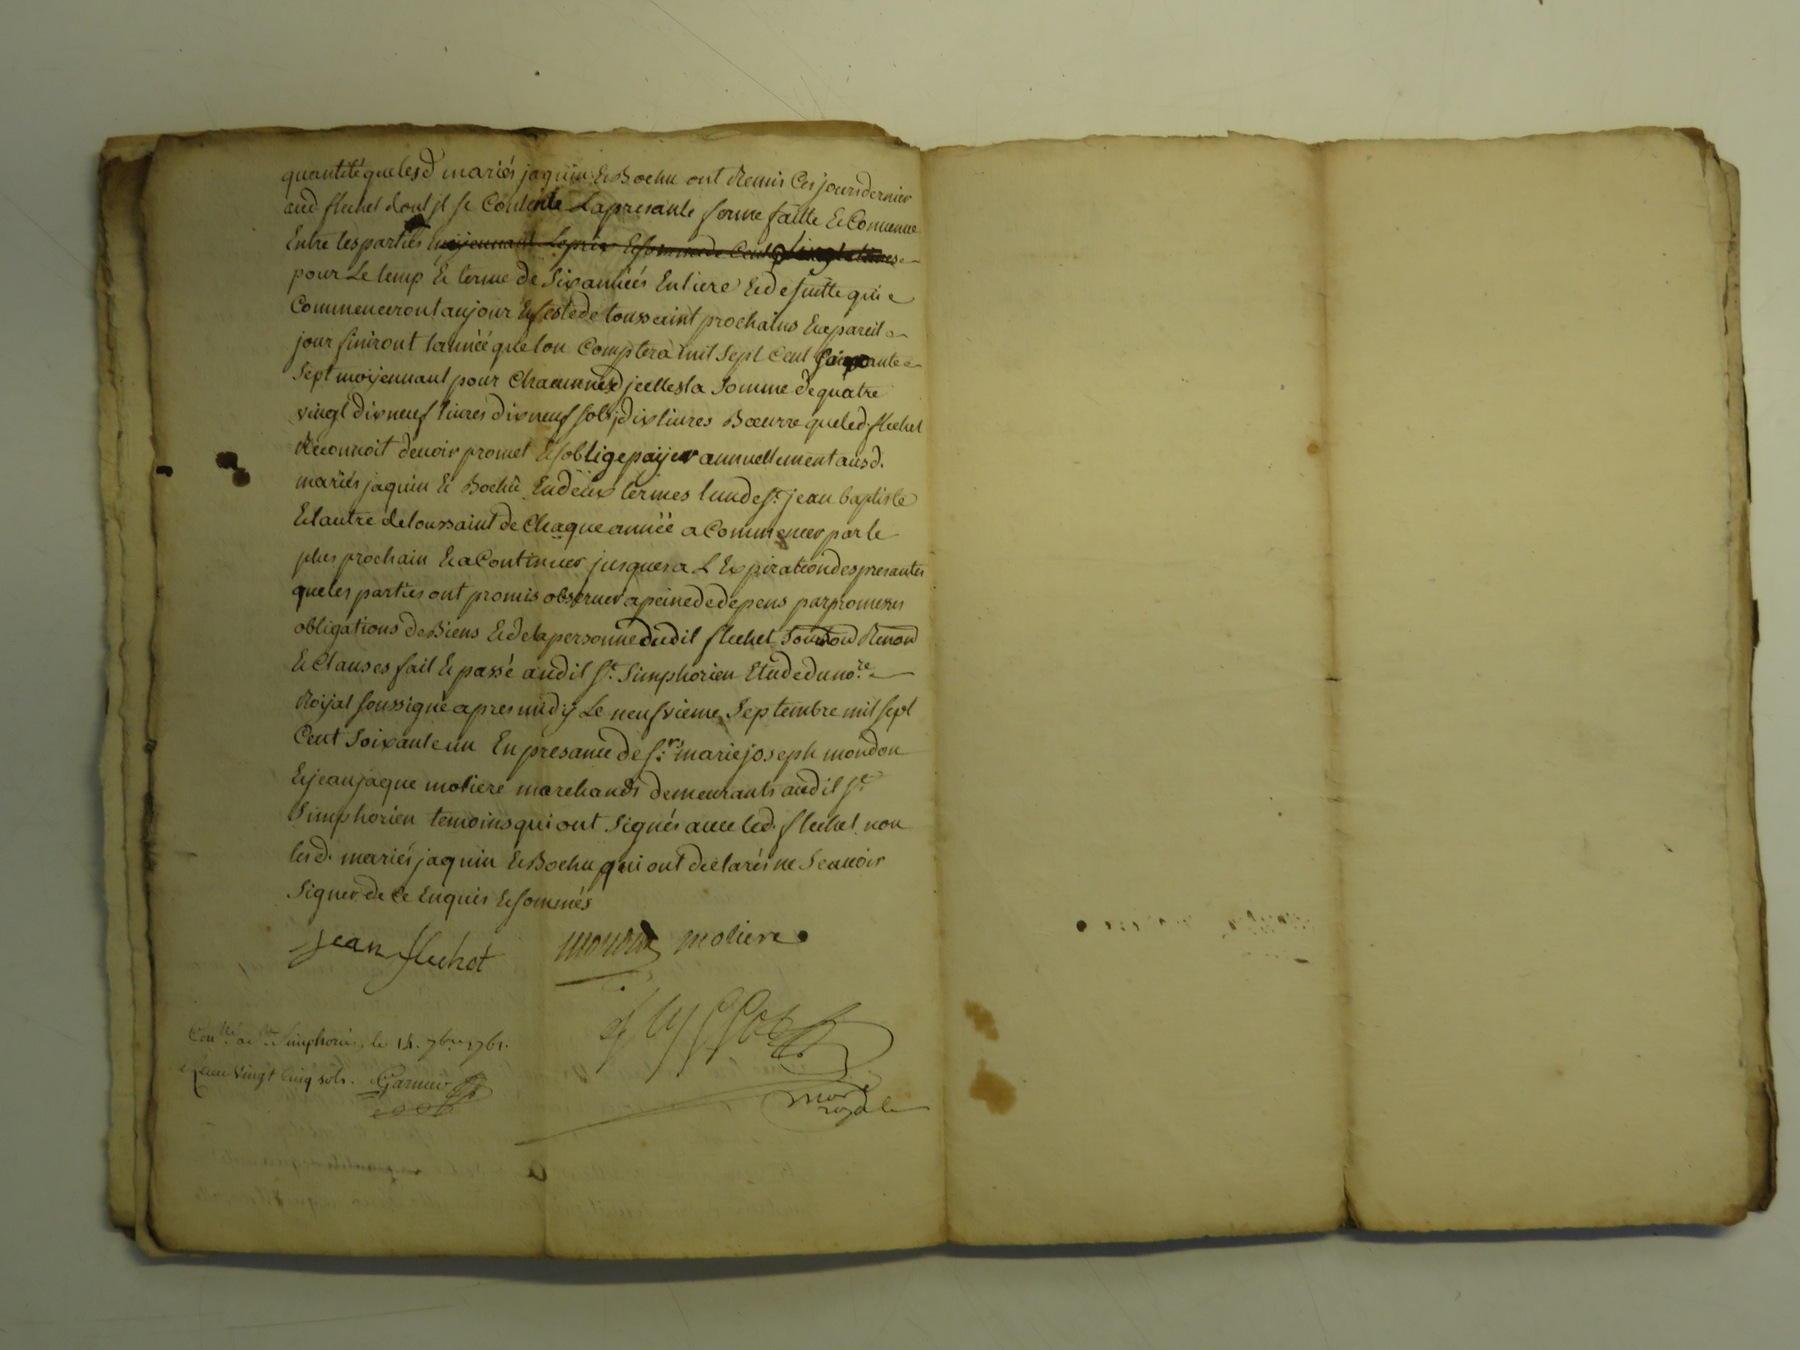 quantité que lesd mariés jaquin & Bochu ont Remis Ces jours dernier
aud flechet dont jl se Contente La presante ferme faitte & Convenue
Entre les parties moyennant Le prix & somme de Cent livres
pour Le temp & terme de Six années Entiere & de suitte qui
Commenceront au jour & feste de toussaint prochains & a pareil
jour finiront lannéé que lon Comptera mil Sept Cent Soixante
Sept moyennant pour Chacunnes djcelles la Somme de quatre
vingt dix neuf livres dix neuf sols, dix livres Bœurre que led. flechet
Reconnoit devoir promet & soblige payer annuellement ausd.
mariés jaquin & Bochu En deux termes lun de st. jean baptiste
& lautre de toussaint de Chaque annéé a Commencer par le
plus prochain & a Continuer jusques a L Expiration des presantes
que les parties ont promis observer a peine de depens par promesses
obligations de Biens & de la personne dudit flechet Soumon Renon
& Clauses fait & passé audit st. Simphorien Etude du no.re
Royal soussigné apres midy Le neufvieme Septembre mil sept
Cent Soixante un En presance de s.rs marie joseph mondon
& jean jaque moliere marchands demeurants audit st
Simphorien temoins qui ont Signés avec led. flechet non
lesd. mariés jaquin & Bochu qui ont declarés ne Scavoir
Signer de Ce Enquis & sommés
jean flechet mondon moliere
Con.lé a St Simphorien, le 14. 7bre 1761.
Reçu vingt cinq sols. Garnier
royale